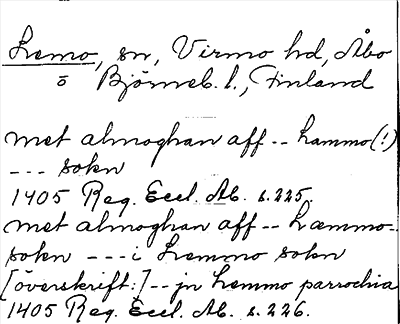 Lemo, sn, Virmo hd, Åbo
o Björneb. l., Finland
met almoghan aff -- Lammo (!)
--- sokn
1405 Reg. Eccl. Ab. s. 225.
met almoghan aff -- Læmmo-
sokn --- i Lemmo sokn
[överskrift:] -- jn Lemmo parrochia
1405 Reg. Eccl. Ab. s. 226.